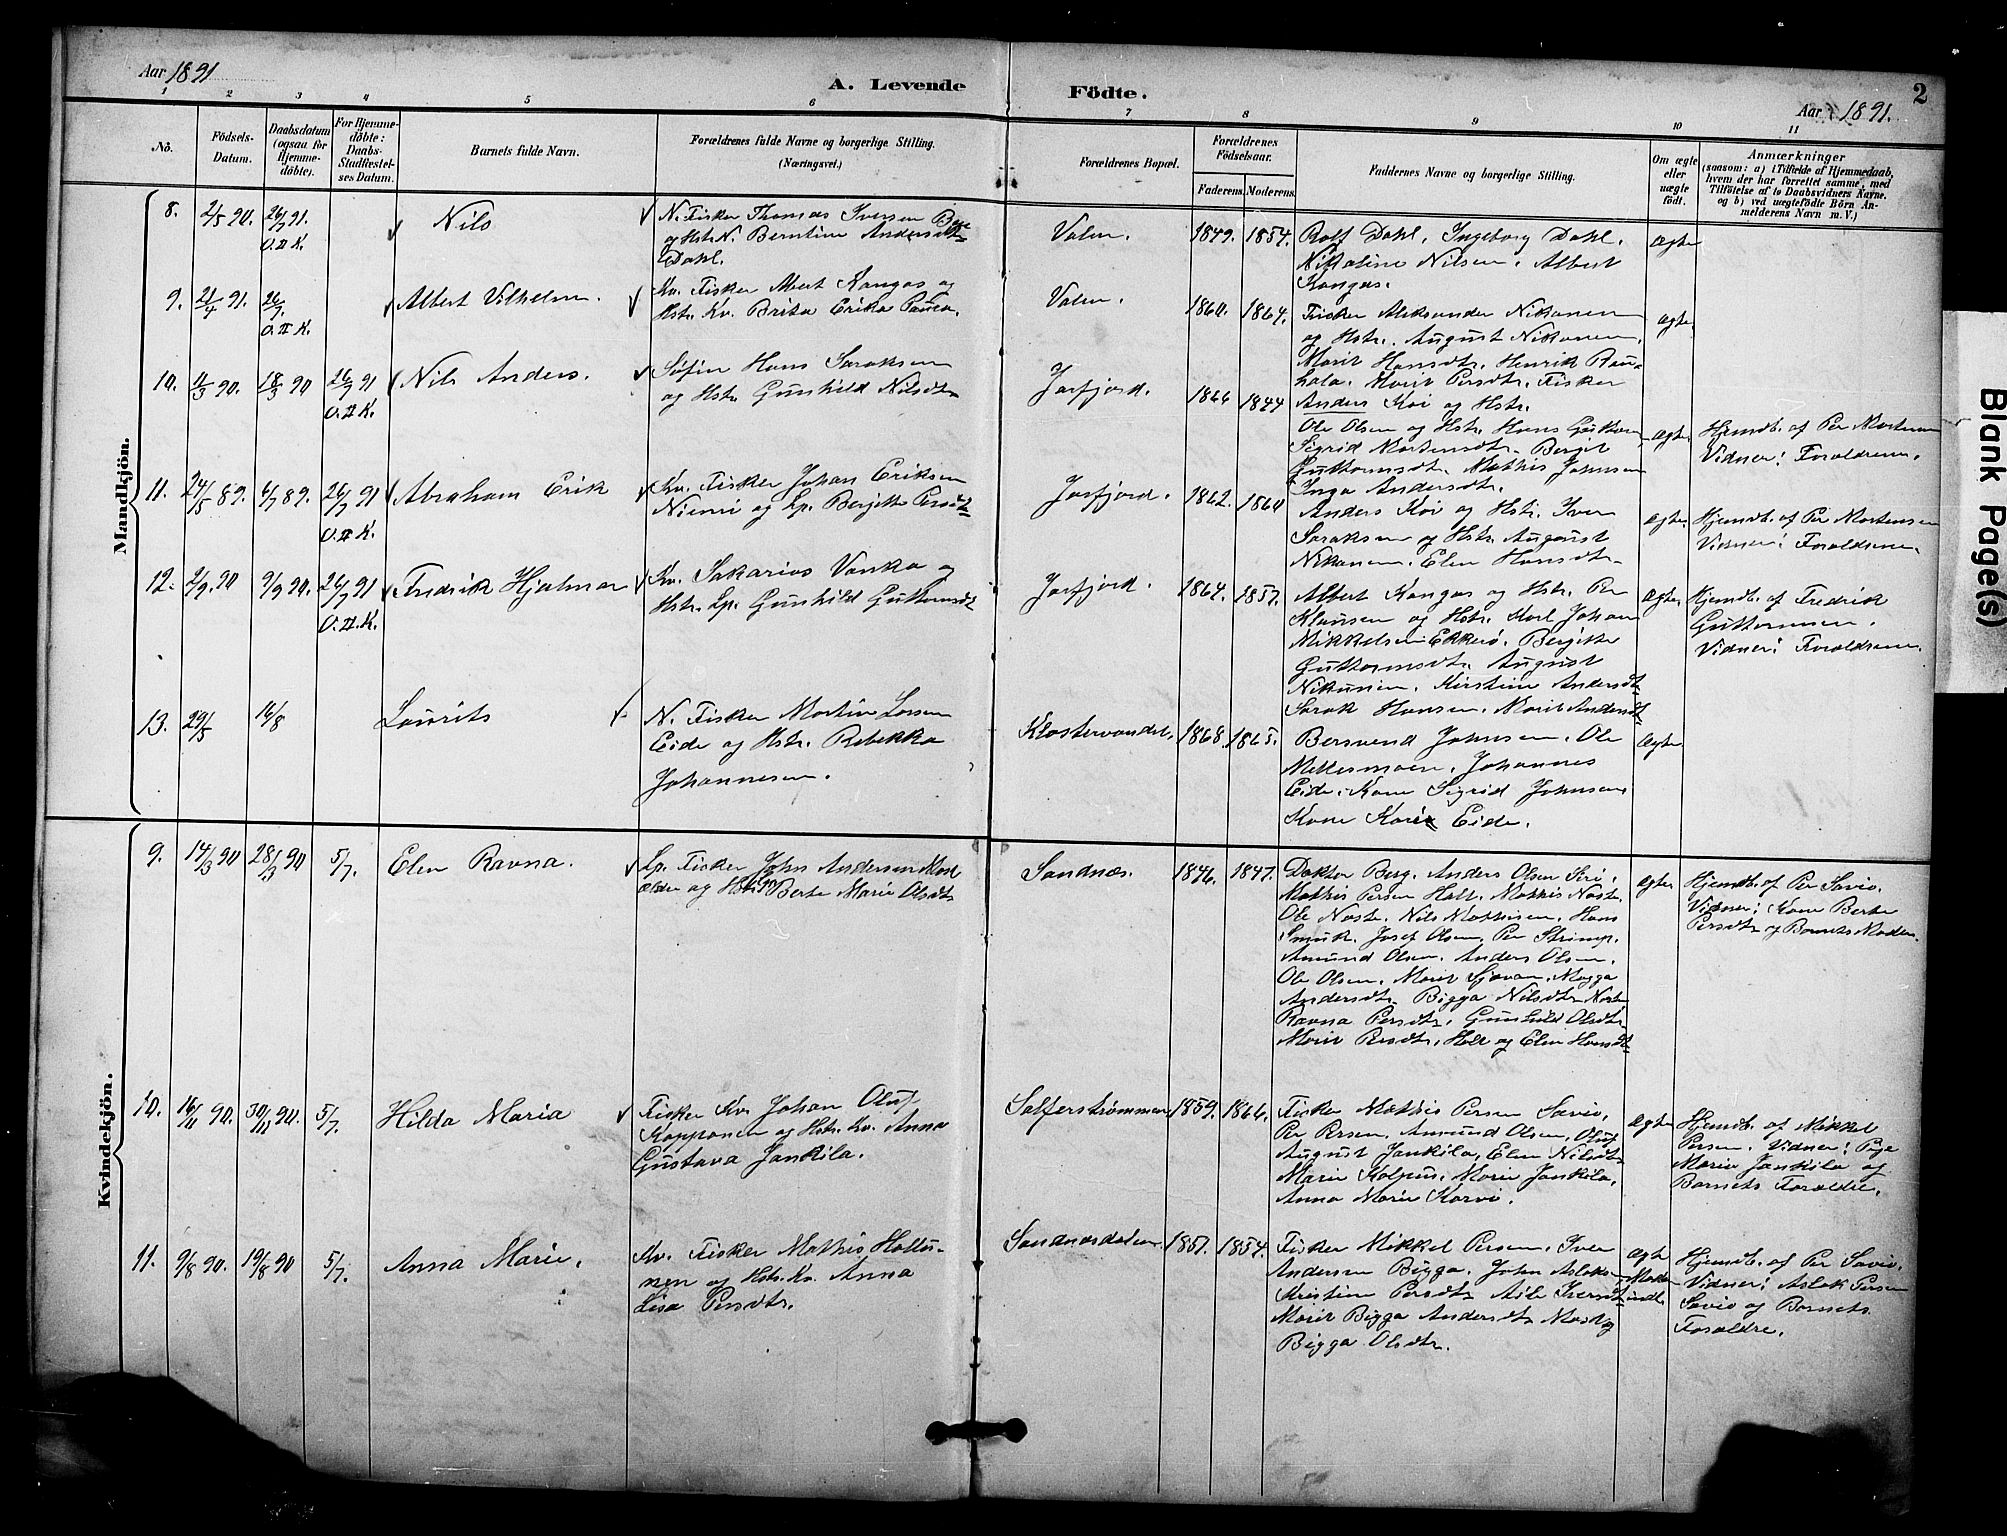 Aar 1891
A. Levende
Födte.
Aar 1891.
2
1 2 3 4 5 6 7 8 9 10 11
No.
Födsels-
Datum.
Daabsdatum
(ogsaa for
Hjemme-
döbte).
For Hjemme-
döbte:
Daabs-
Stadfæstel-
ses Datum.
Barnets fulde Navn.
Forældrenes fulde Navne og borgerlige Stilling.
(Næringsvei.)
Forældrenes Bopæl.
Forældrenes
Födselsaar.
Faderens. Moderens.
Faddernes Navne og borgerlige Stilling.
Om ægte
eller
uægte
födt.
Anmærkninger
(saasom: a) i Tilfælde af Hjemmedaab,
hvem der har forrettet samme, med
Tilföielse af to Daabsvidners Navne.
og b) ved uægtefödte Börn An-
melderens Navn m. V.)
Mandkjön.
8.
2/5 90.
26/7 91.
O.II K.
Nils
N. Fisker Thomas Iversen
og Hstr. N. Berntine Andersdtr
Dahl.
Valen.
1849. 1854.
Rolf Dahl. Ingeborg Dahl.
Nikoline Nilsen. Albert
Kangas.
Ægte
9.
2/4 91.
26/7.
O.II K.
Albert Vilhelm.
Kv. Fisker Albert Kangas og
Hstr. Kv. Brita Erika
Valen.
1860. 1864.
Fisker Aleksander Nikanen
og Hstr. August Nikanen.
Marit Hansdtr. Henrik Rau-
hala. Marit Persdtr. Fisker
Anders Koi og Hstr.
Ægte
10.
11/3 90.
18/3 90
26/7 91
O.II K.
Nils Anders.
Søfin Hans Saraksen
og Hstr. Gunhild Nilsdtr
Jarfjord.
1866 1844
Ole Olsen og Hstr. Hans Guttorm
Sigrid Mortensdtr. Bergit
Guttormsdtr. Mathis Johnsen
Inga Andersdtr.
Ægte
Hjemdb. af Per Mortensen
Vidner: Forældrene.
11.
24/5 89.
6/7 89.
26/7 91
O.II K.
Abraham Erik
Kv. Fisker Johan Eriksen
Niemi og Lp. Bergitte Persdtr
Jarfjord.
1862. 1860
Anders Koi og Hstr. Iver
Saraksen og Hstr. August
Nikanen. Elen Hansdtr.
Ægte
Hjemdb. af Per Mortensen
Vidner: Forældrene.
12.
2/9 90
9/9 90.
26/7 91
O.II.K.
Fredrik Hjalmar
Kv. Sakarias Vanka og
Hstr. Lp. Gunhild Guttormsdtr
Jarfjord.
1864. 1857.
Albert Kangas og Hstr. Per
Klausen og Hstr. Karl Johan
Mikkelsen Ekkerø. Bergitte
Guttormsdtr. August
Nikunen. Kirstine Andersdtr
Sarak Hansen. Marit Andersdtr
Ægte
Hjemdb. af Fredrik
Guttormsen.
Vidner: Forældrene.
13.
29/5
16/8
Laurits
N. Fisker Martin Larsen
Eide og Hstr. Rebekka
Johannesen.
Klostervandet.
1868. 1865.
Bersvend Johnsen. Ole
Mellesmoen. Johannes
Eide. Kone Sigrid Johnsen
Kone Kari Eide.
Ægte
Kvindekjön.
9.
14/3 90
28/3 90
5/7.
Elen Ravna.
Lp. Fisker John Andersen
og Hstr. Berte Marie Olsdtr
Sandnæs.
1846. 1847.
Doktor Berg. Anders Olsen Siri.
Mathis Persen Halt. Mathis Noste.
Ole Noste. Nils Mathisen. Hans
Smuk. Josef Olsen. Per Strimp.
Amund Olsen. Anders Olsen.
Ole Olsen. Marit Sjavan. Magga
Andersdtr. Bigga Nilsdtr Noste
Ravna Persdtr. Gunhild Olsdtr
Marit Persdtr. Halt og Elen Hansdtr
Ægte
Hjemdb. af Per Savio.
Vidner: Kone Berte
Persdtr og Barnets Moder.
10.
16/11 90.
30/11 90.
5/7.
Hilda Maria
Fisker Kv. Johan Oluf
Kopponen og Hstr. Kv. Anna
Gustava Jankila.
Salferstrømmen
1859. 1866.
Fisker Mathis Persen Savio.
Per Persen. Amund Olsen. Oluf
August Jankila, Elen Nilsdtr
Marie Kolpus. Marie Jankila.
Anna Marie Karvo.
Ægte
Hjemdb. af Mikkel
Persen. Vidner: Pige
Marie Jankila og
Barnets Forældre.
11.
9/8 90.
19/8 90
5/7.
Anna Marie.
Kv. Fisker Mathis Hallu-
nen og Hstr. Kv. Anna
Lisa Persdtr.
Sandnesdalen
1851. 1854.
Fisker Mikkel Persen. Iver
Andersen Bigga. John Aslaksen
Kristine Persdtr. Aile Iversdtr
Marit Bigga Andersdtr
Bigga Olsdtr.
Ægte
Hjemdb. af Per Savio.
Vidner: Aslak Persen
Savio og Barnets
Forældre.
Blank Page(s)